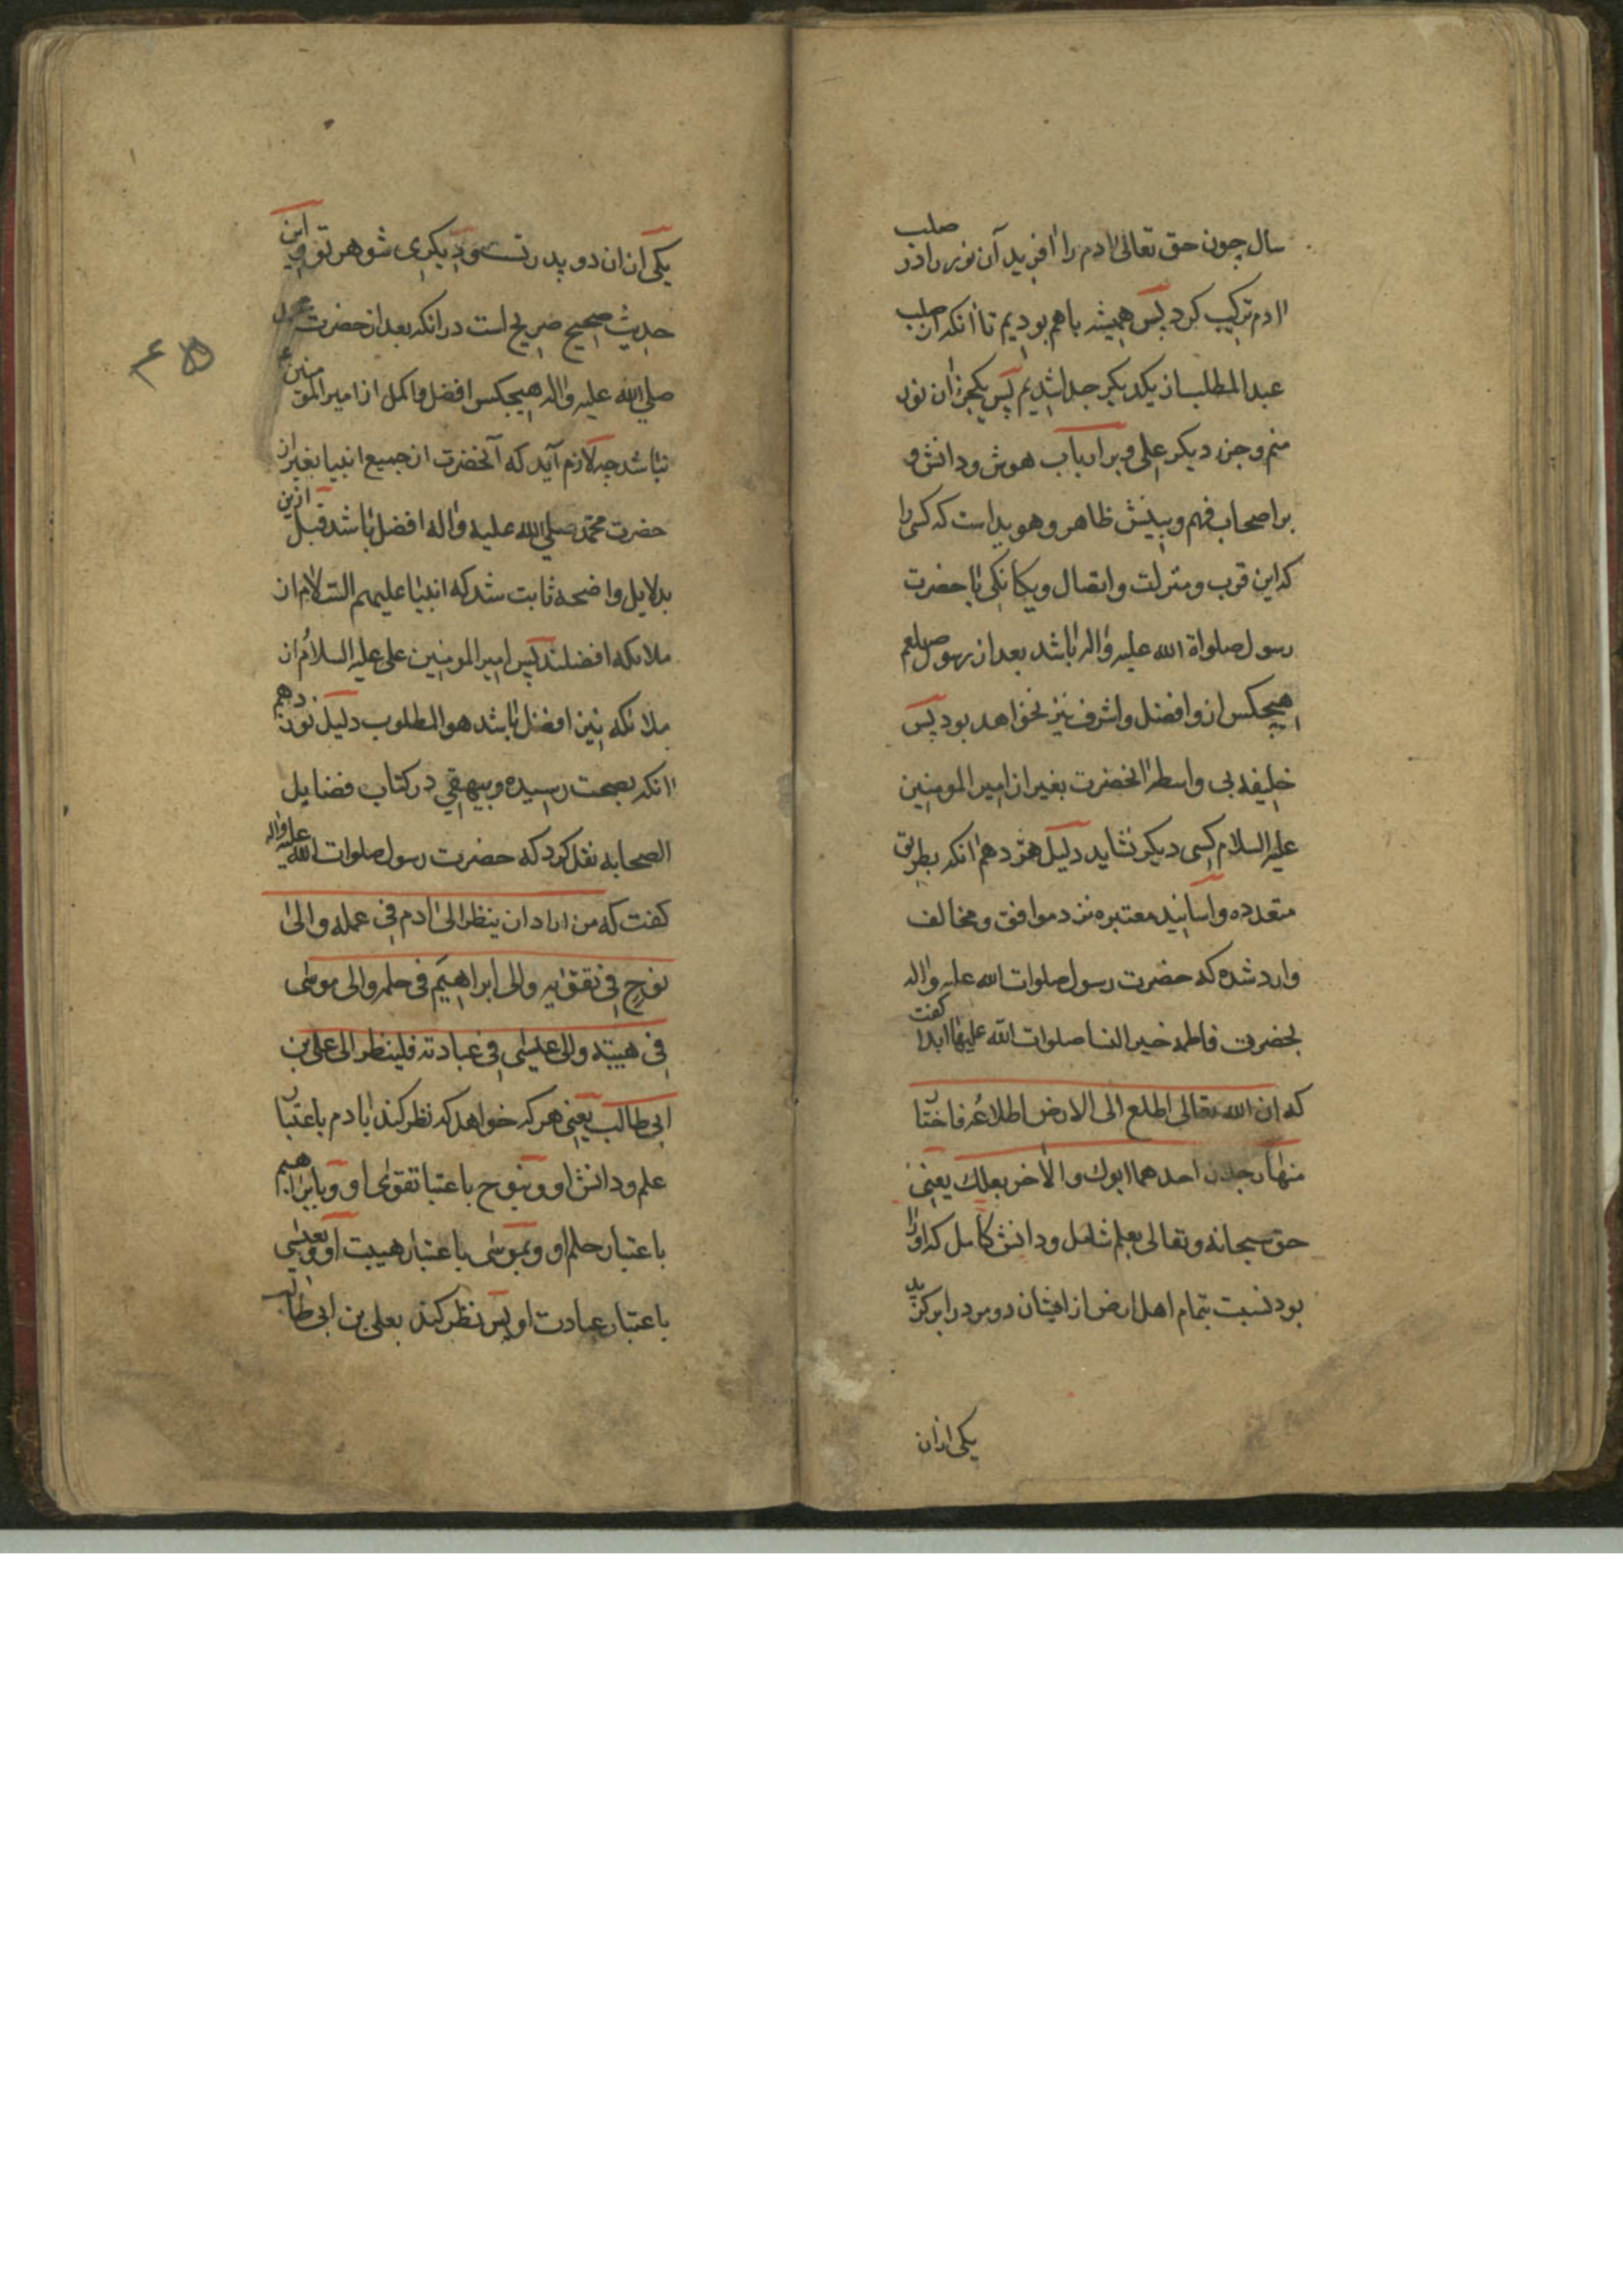 سال چون حق تعالی ادم را افرید آن نور را در صلب
ادم ترکیب کرد پس همیشه باهم بودیم تا انکه از صلب
عبد المطلب از یکدیکر جدا شدیم پس یکجز ازان نور
منم و جز دیکر علی و بر ارباب هوش و دانش و
بر اصحاب فهم و بینش ظاهر و هویداست که کسی را
که این قرب و منزلت و اتصال و یکانکی با حضرت
رسول صلواة الله علیه واله باشد بعد از رسول صلعم
هیچکس ازو افضل و اشرف نیز نخواهد بود پس
خلیفه بی واسطه انحضرت بغیر از امیر المومنین
علیه السلام کسی دیکر نشاید دلیل هژدهم انکه بطریق
متعدده و اسانید معتبره نزد موافق و مخالف
وارد شده که حضرت رسول صلوات الله علیه واله
بحضرت فاطمه خیر النسا صلوات الله علیها ابدا کفت
که ان الله تعالی اطلع الی الارض اطلاعه فاختار
منها رجلان احدهما ابوک والاخر بعلک یعنی
حق سبحانه و تعالی بعلم شامل و دانش کامل که او را
بود نسبت بتمام اهل ارض از ایشان دو مرد را برکزید
یکی ازان
یکی ازان دو پدر تست و دیکری شوهر تو و این
حدیث صحیح صریح است در انکه بعد از حضرت محمد
صلی الله علیه واله هیچکس افضل و اکمل از امیر المومنین ع
نباشد چه لازم آید که آنحضرت از جمیع انبیا بغیر از
حضرت محمد صلی الله علیه واله افضل باشد قبل ازین
بدلایل واضحه ثابت شد که انبیا علیهم السلام از
ملائکه افضلند پس امیر المومنین علی علیه السلام از
ملائکه نیز افضل باشد هو المطلوب دلیل نوزدهم
انکه بصحت رسیده و بیهقی در کتاب فضایل
الصحابه نقل کرد که حضرت رسول صلوات الله علیه واله
کفت که من اراد ان ینظر الی ادم فی عمله والی
نوح فی تقوٰیه والی ابراهیم فی حلمه والی موسی
فی هیبته والی عیسی فی عبادته فلینظر الی علی بن
ابی طالب یعنی هر که خواهد که نظر کند بادم باعتبار
علم و دانش او و بنوح باعتبا تقوی او و بابراهیم
باعتبار حلم او و بموسی باعتبار هیبت او و بعیسی
باعتبار عبادت او پس نظر کند بعلی بن ابی طالب
۴۵